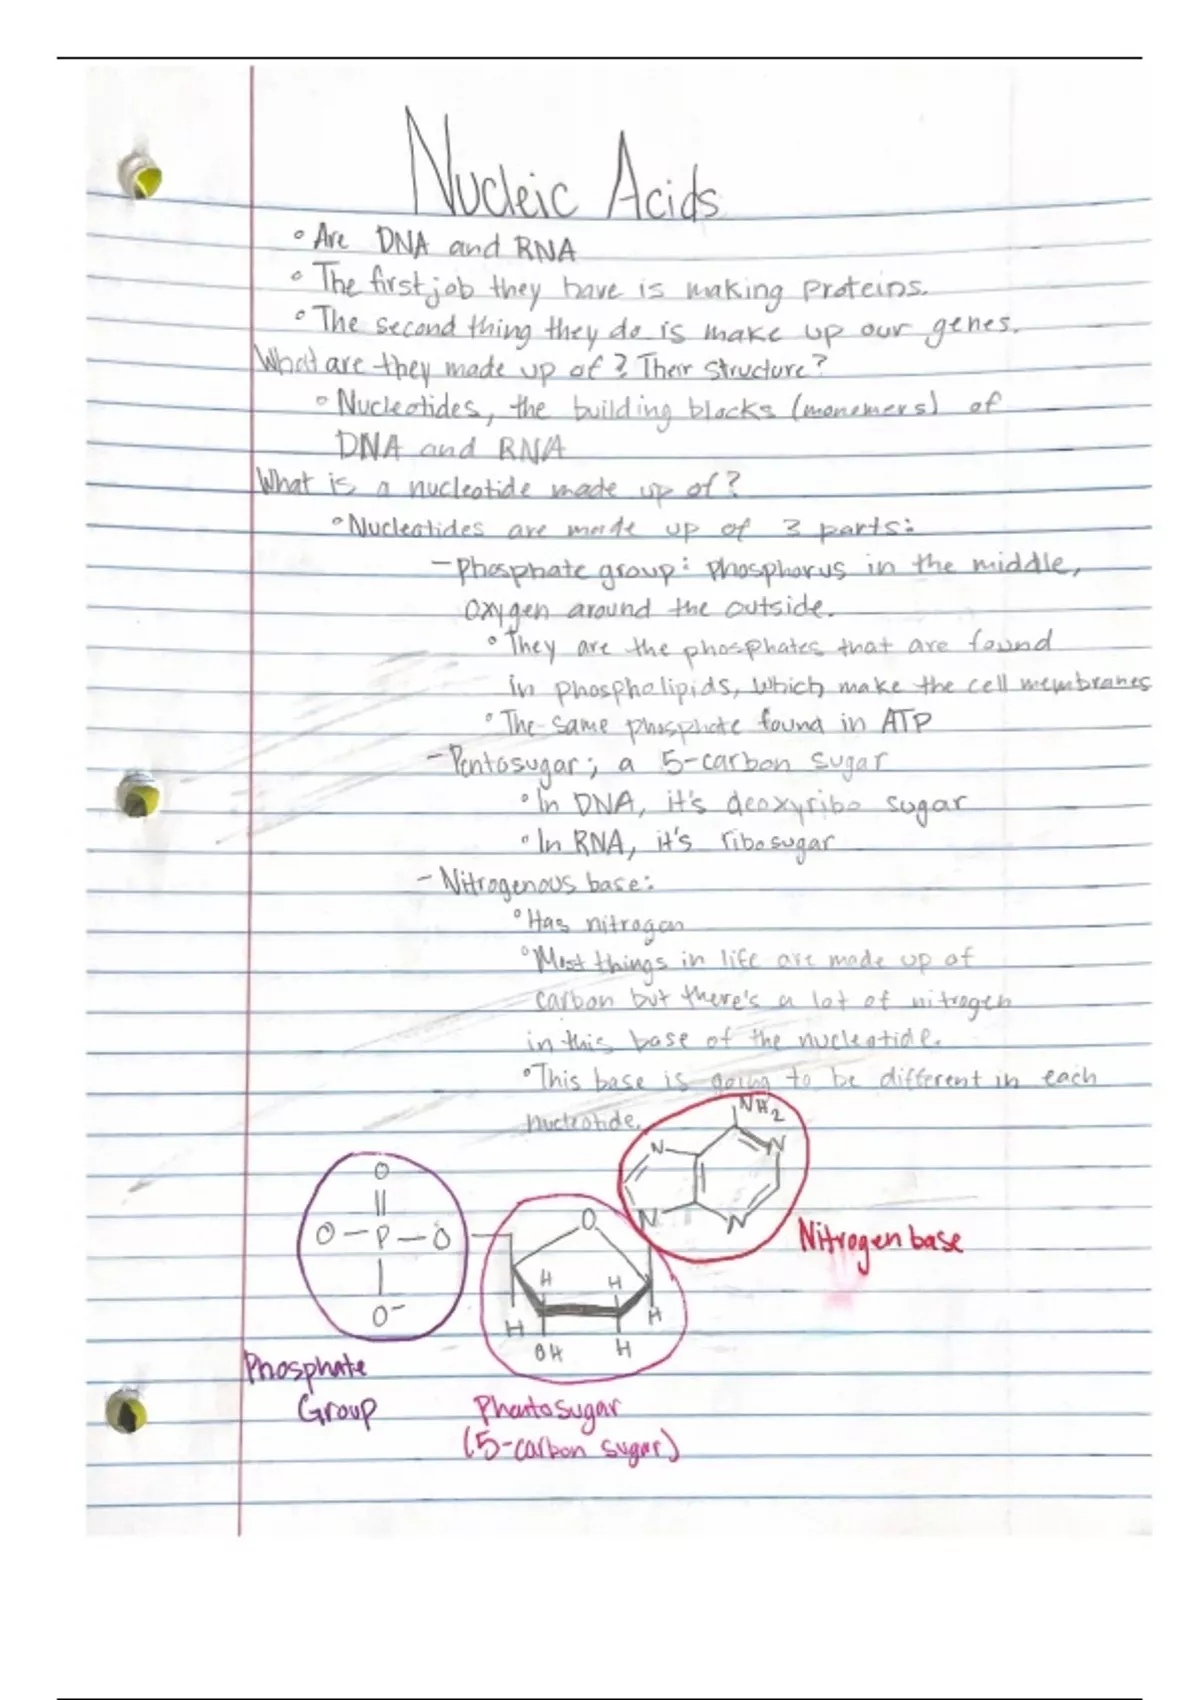 Nucleic Acids
° Are DNA and RNA
° The first job they have is making proteins.
° The second thing they do is make up our genes.
What are they made up of? Their structure?
° Nucleotides, the building blocks (monomers) of
DNA and RNA
What is a nucleotide made up of?
° Nucleotides are made up of 3 parts:
- Phosphate group: phosphorus in the middle,
oxygen around the outside.
° They are the phosphates that are found
in phospholipids, which make the cell membranes
° The same phosphate found in ATP
- Pentosugar; a 5-carbon sugar
° In DNA, it's deoxyribo sugar
° In RNA, it's ribosugar
- Nitrogenous base:
° Has nitrogen
° Most things in life are made up of
carbon but there's a lot of nitrogen
in this base of the nucleotide.
° This base is going to be different in each
nucleotide.
NH2
N N
N N
O
O-P-O
O-
O
H H
H H
OH H
Nitrogen base
Phosphate
Group
Phentosugar
(5-carbon sugar)